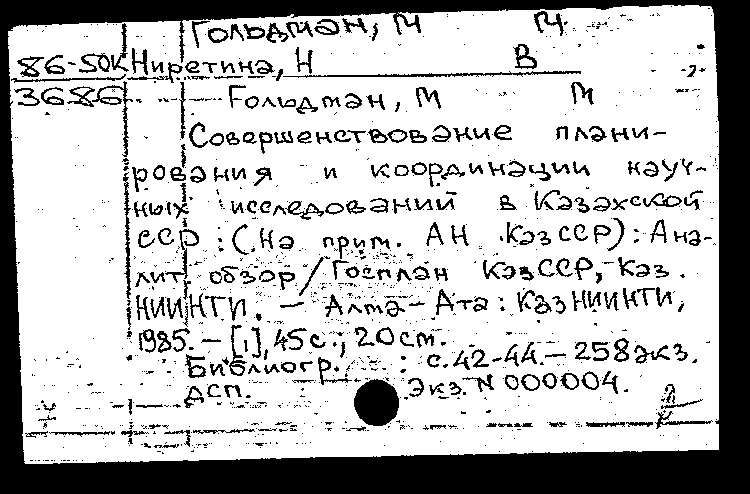 Гольдман, М М.
86-50К Ниретина, Н В
-2-
3686 Гольдман, М М
Совершенствование плани-
рования и координации науч-
ных исследований в Казахской
ССР : (На прим. АН КазССР) : Ана-
лит. обзор / Госплан КазССР, Каз.
НИИНТИ. — Алма-Ата : КазНИИНТИ,
1985. — [1], 45 с. ; 20 см.
Библиогр. : с. 42-44. — 258 экз.
ДСП. Экз. N 000004.